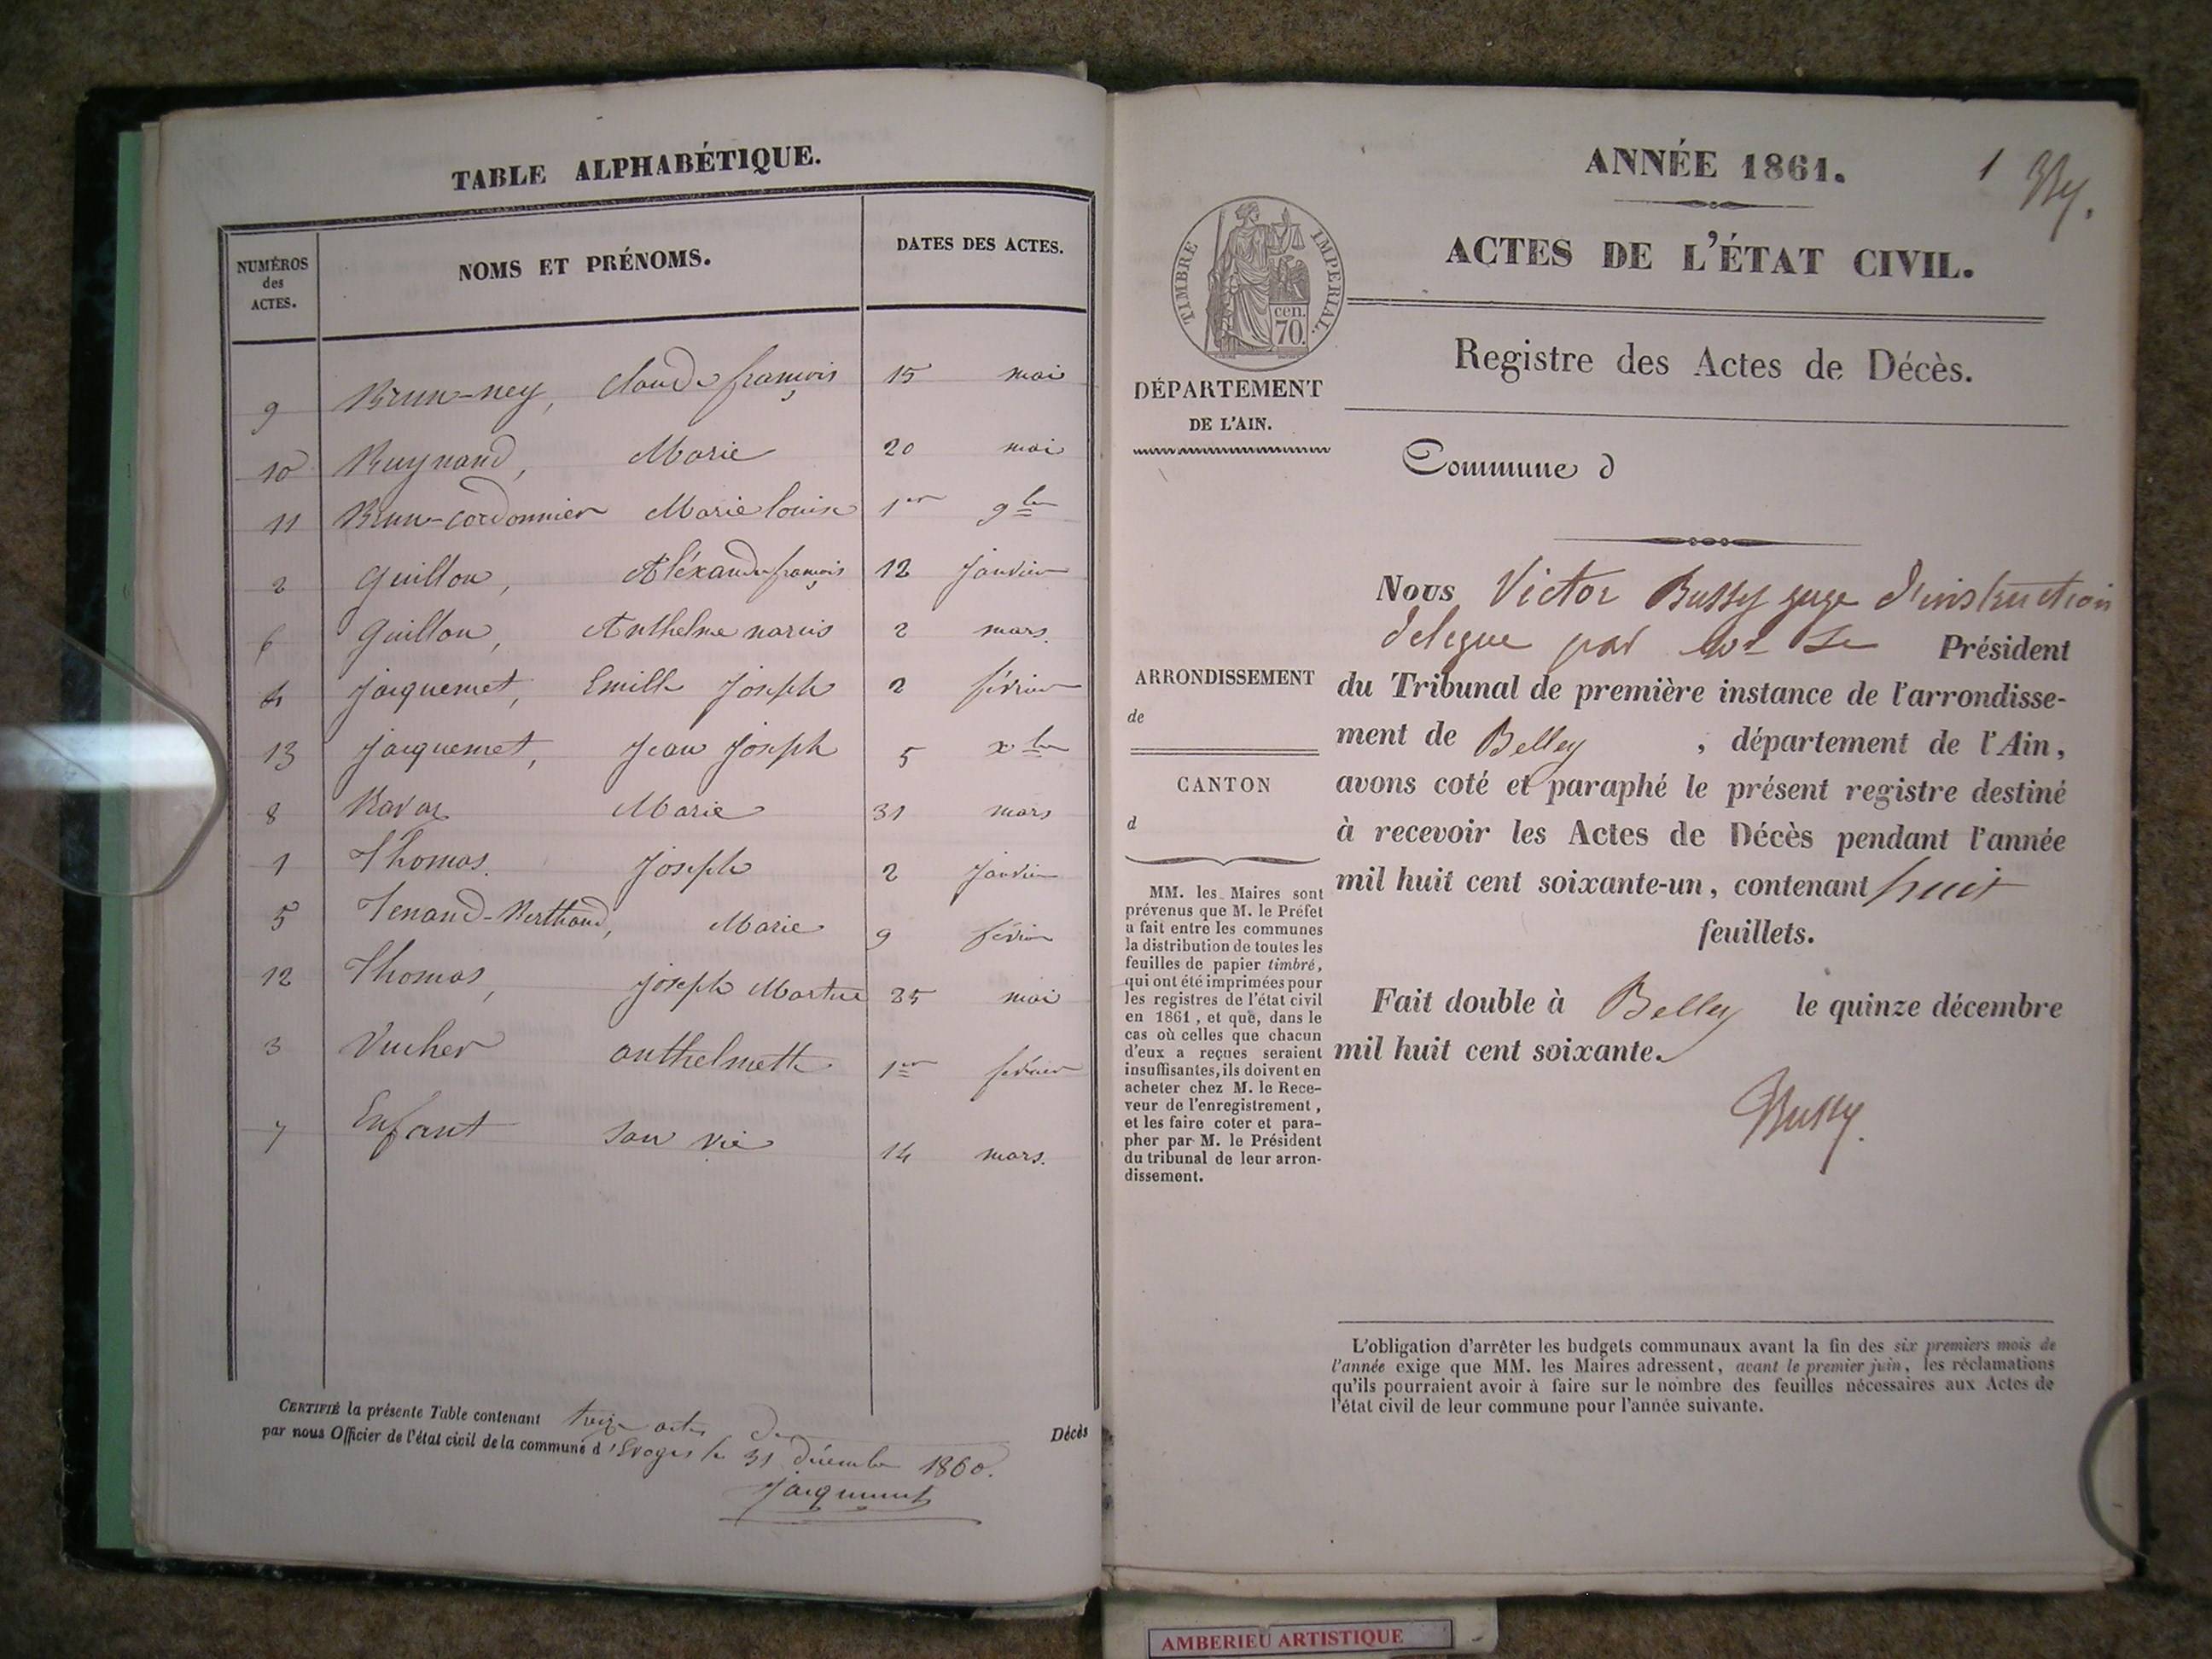 TABLE ALPHABÉTIQUE.
NUMÉROS
des
ACTES.
NOMS ET PRÉNOMS.
DATES DES ACTES.
9 Brun-ney, Claude françois 15 mai
10 Buynand, Marie 20 mai
11 Brun-Cordonnier Marie louise 1er 9bre
2 Guillon, Aléxandre françois 12 Janvier
6 Guillon, Anthelme narcis 2 mars.
4 Jacquemet, Emille Joseph 2 février
13 Jacquemet, Jean Joseph 5 xbre
8 Ravaz Marie 31 mars
1 Thomas. Joseph 2 Janvier
5 Tenand-Berthaud, Marie 9 février
12 Thomas, Joseph 25 mai
3 Vucher anthelmette 1er février
7 Enfant san vie 14 mars.
CERTIFIÉ la présente Table contenant treize actes de Décès
par nous Officier de l'état civil de la commune d'Evoges le 31 décembre 1860.
Jacquemet
ANNÉE 1861.
1 By.
ACTES DE L'ÉTAT CIVIL.
TIMBRE IMPERIAL.
cen.
70.
Registre des Actes de Décès.
DÉPARTEMENT
DE L'AIN.
Commune d
Nous Victor Bussy juge d'instruction
delegue par Mr Le Président
du Tribunal de première instance de l'arrondisse-
ment de Belley , département de l'Ain,
avons coté et paraphé le présent registre destiné
à recevoir les Actes de Décès pendant l'année
mil huit cent soixante-un, contenant huit
feuillets.
Fait double à Belley le quinze décembre
mil huit cent soixante.
Bussy.
ARRONDISSEMENT
de
CANTON
d
MM. les Maires sont
prévenus que M. le Préfet
a fait entre les communes
la distribution de toutes les
feuilles de papier timbré,
qui ont été imprimées pour
les registres de l'état civil
en 1861, et que, dans le
cas où celles que chacun
d'eux a reçues seraient
insuffisantes, ils doivent en
acheter chez M. le Rece-
veur de l'enregistrement,
et les faire coter et para-
pher par M. le Président
du tribunal de leur arron-
dissement.
L'obligation d'arrêter les budgets communaux avant la fin des six premiers mois de
l'année exige que MM. les Maires adressent, avant le premier juin, les réclamations
qu'ils pourraient avoir à faire sur le nombre des feuilles nécessaires aux Actes de
l'état civil de leur commune pour l'année suivante.
AMBERIEU ARTISTIQUE